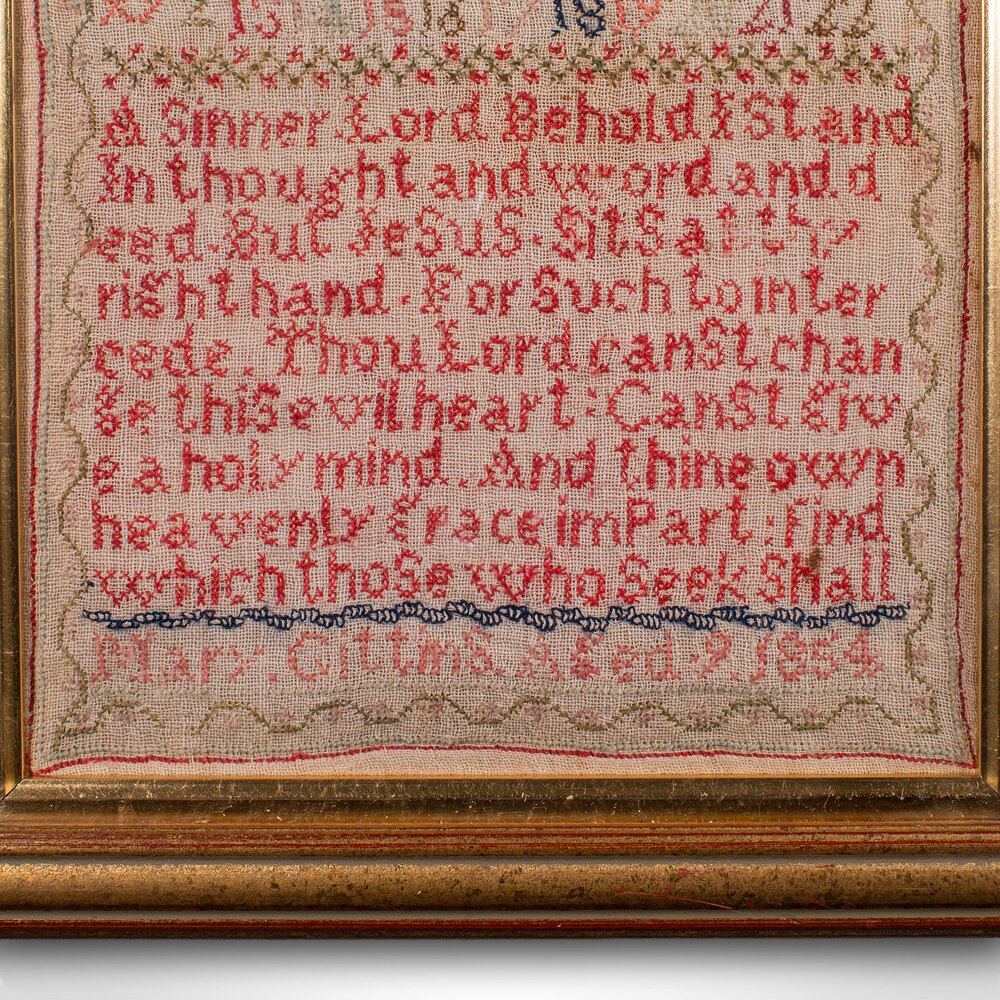 15 16 18 17 18 19 21 22
A Sinner Lord Behold I Stand
In thought and word and d
eed. But Jesus. Sits at thy
right hand. For Such to inter
cede. Thou Lord canst chan
ge this evil heart: Canst giv
e a holy mind. And thine own
heavenly grace impart: find
which those who Seek Shall
Mary. Gittins. Aged. 9. 1854